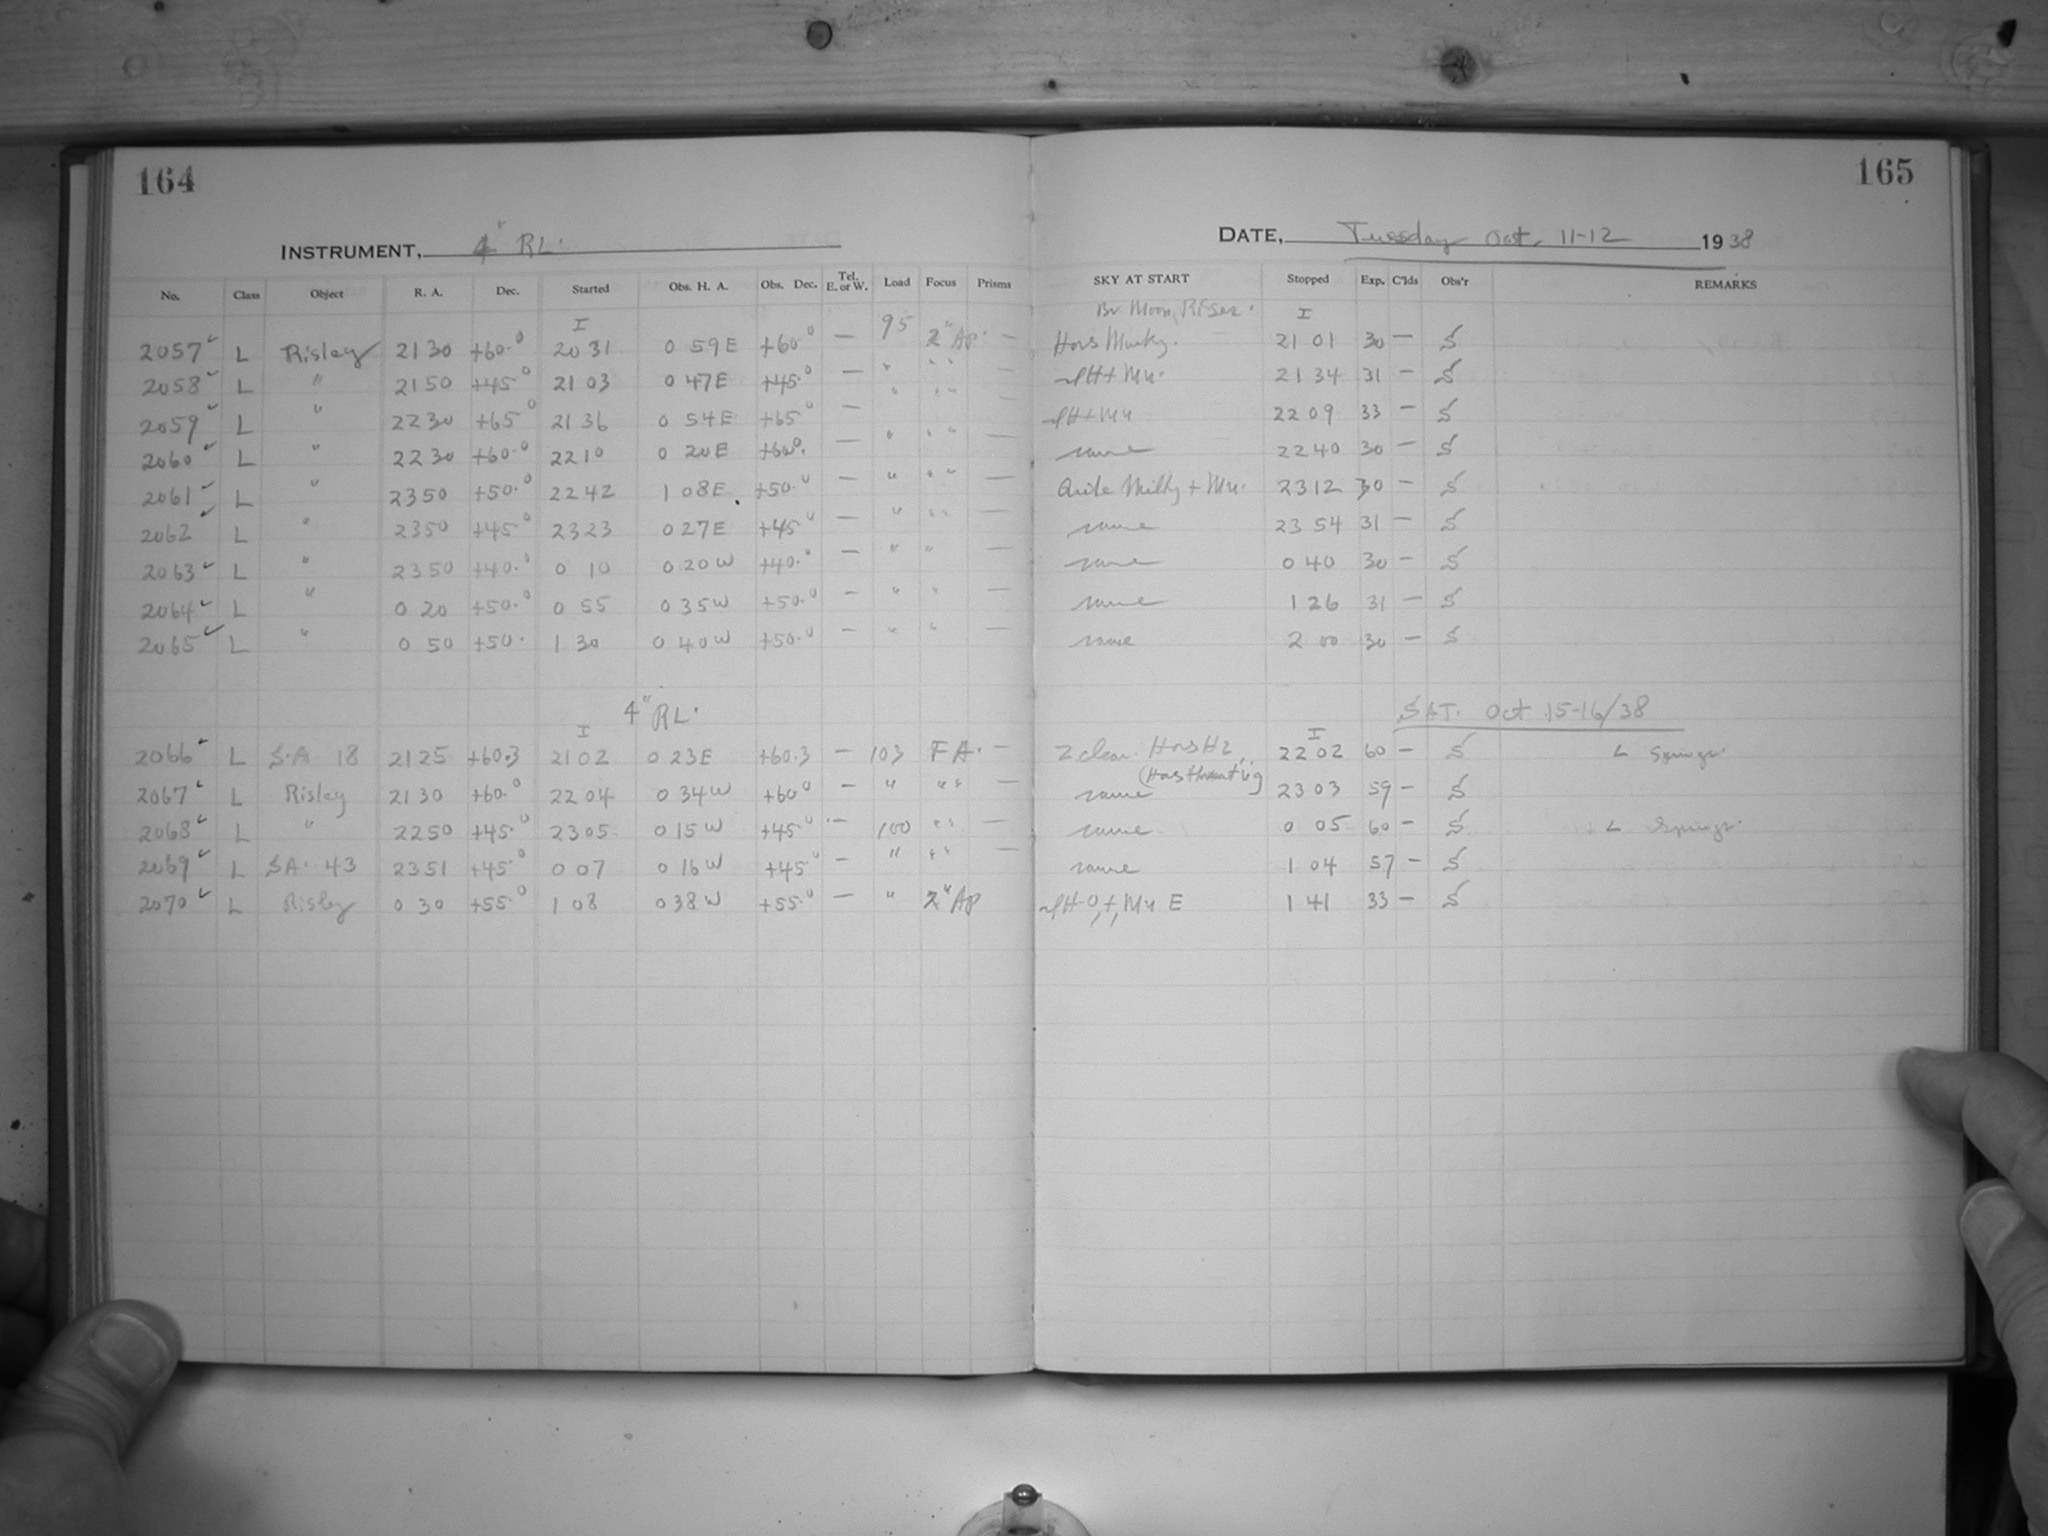 164
INSTRUMENT, 4" RL.
No. Class Object R. A. Dec. Started Obs. H. A. Obs. Dec. Tel. E. or W. Load Focus Prisms
I
2057 ✓ L Risley 21 30 +60.° 20 31 0 59 E +60° — 95 2" Ap. —
2058 ✓ L " 21 50 +45° 21 03 0 47 E +45.° — " " " —
2059 ✓ L " 22 30 +65° 21 36 0 54 E +65° — " " "
2060 ✓ L " 22 30 +60.° 22 10 0 20 E +60°. — " " " —
2061 ✓ L " 23 50 +50.° 22 42 1 08 E +50.° — " " " —
2062 ✓ L " 23 50 +45.° 23 23 0 27 E +45° — " " " —
2063 ✓ L " 23 50 +40.° 0 10 0 20 W +40.° — " " —
2064 ✓ L " 0 20 +50.° 0 55 0 35 W +50.° — " " —
2065 ✓ L " 0 50 +50. 1 30 0 40 W +50.° — " " —
4" RL.
I
2066 ✓ L S.A 18 21 25 +60.3 21 02 0 23 E +60.3 — 103 F A. —
2067 ✓ L Risley 21 30 +60.° 22 04 0 34 W +60° — " " " —
2068 ✓ L " 22 50 +45.° 23 05 0 15 W +45° — 100 " " —
2069 ✓ L SA. 43 23 51 +45° 0 07 0 16 W +45° — " " " —
2070 ✓ L Risley 0 30 +55.° 1 08 0 38 W +55.° — " 2" Ap
165
DATE, Tuesday Oct. 11-12 1938
SKY AT START Stopped Exp. C'lds Obs'r REMARKS
Br. Moon, I
Hors Murky. 21 01 30 — S
+ Mu. 21 34 31 — S
+ Mu 22 09 33 — S
same 22 40 30 — S
Quite Milky + Mu. 23 12 30 — S
same 23 54 31 — S
same 0 40 30 — S
same 1 26 31 — S
same 2 00 30 — S
SAT. Oct 15-16/38
I
Z clear. Hors Hz, 22 02 60 — S L Springs
same 23 03 59 — S
same 0 05 60 — S L Springs
same 1 04 57 — S
Mu E 1 41 33 — S